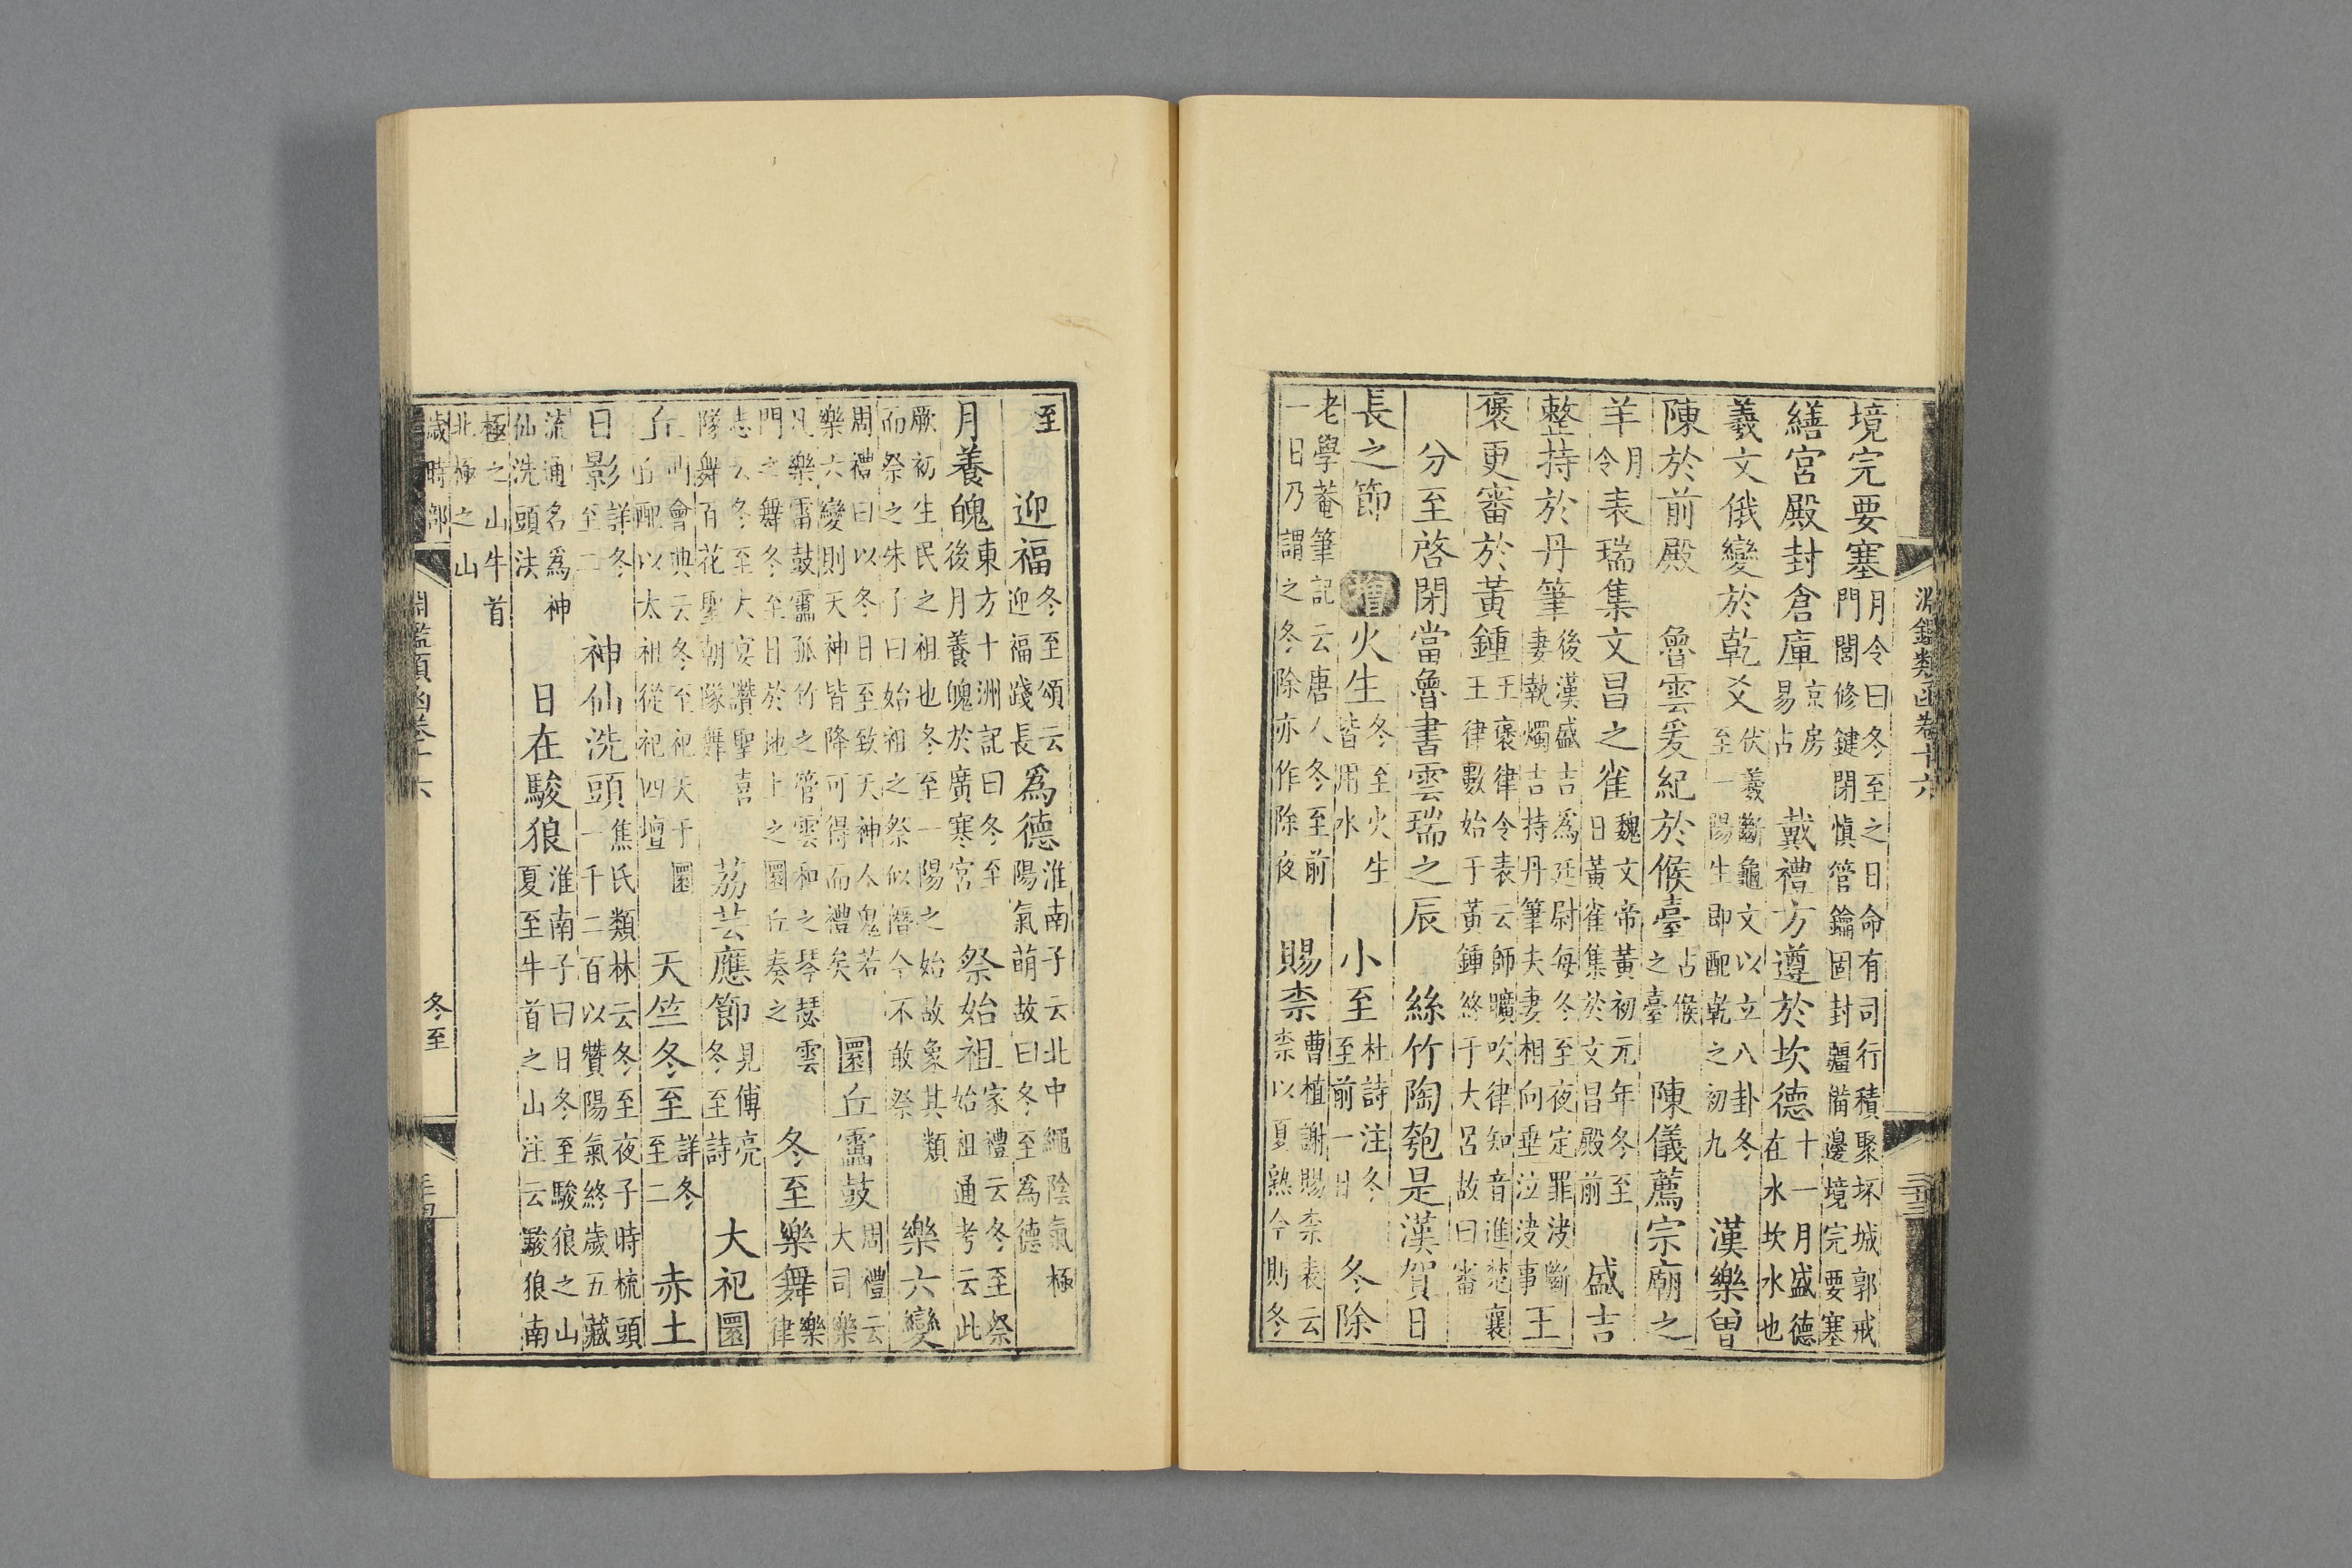 淵鑑類函卷十六
三十三
境完要塞
月令曰冬至之日命有司行積聚坏城郭戒
門閭修鍵閉慎管鑰固封疆備邊境完要塞
繕宮殿封倉庫
京房
易占
戴禮方遵於坎德
十一月盛德
在水坎水也
羲文俄變於乾爻
伏羲斷龜文以立八卦冬
至一陽生即配乾之初九
漢樂曾
陳於前殿
魯雲爰紀於候臺
占候
之臺
陳儀薦宗廟之
羊
月
令
表瑞集文昌之雀
魏文帝黃初元年冬至
日黃雀集於文昌殿前
盛吉
整持於丹筆
後漢盛吉爲廷尉每冬至夜定罪決斷
妻執燭吉持丹筆夫妻相向垂泣決事
王
褒更審於黃鍾
王褒律令表云師曠吹律知音進楚襄
王律數始于黃鍾終于大呂故曰審
分至啓閉當魯書雲瑞之辰
絲竹陶匏是漢賀日
長之節
增
火生
冬至火生
皆用水
小至
杜詩注冬
至前一日
冬除
老學菴筆記云唐人冬至前
一日乃謂之冬除亦作除夜
賜柰
曹植謝賜柰表云
柰以夏熟今則冬
至
迎福
冬至頌云
迎福踐長
爲德
淮南子云北中繩陰氣極
陽氣萌故曰冬至爲德
月養魄
東方十洲記曰冬至
後月養魄於廣寒宮
祭始祖
家禮云冬至祭
始祖通考云此
厥初生民之祖也冬至一陽之始故象其類
而祭之朱子曰始祖之祭似僭今不敢祭
樂六變
周禮曰以冬日至致天神人鬼若
樂六變則天神皆降可得而禮矣
圜丘靁鼓
周禮云
大司樂
凡樂雷鼓靁孤竹之管雲和之琴瑟雲
門之舞冬至日於地上之圜丘奏之
冬至樂舞
樂
律
志云冬至大宴讚聖喜
隊舞百花聖朝隊舞
荔芸應節
見傅亮
冬至詩
大祀圜
丘
明會典云冬至祀天于圜
丘配以太祖從祀四壇
天竺冬至
詳冬
至二
赤土
日影
詳冬
至二
神仙洗頭
焦氏類林云冬至夜子時梳頭
一千二百以贊陽氣終歲五藏
流通名爲神
仙洗頭法
日在駿狼
淮南子曰日冬至駿狼之山
夏至牛首之山注云駿狼南
極之山牛首
北極之山
歲時部
淵鑑類函卷十六
冬至
三十四